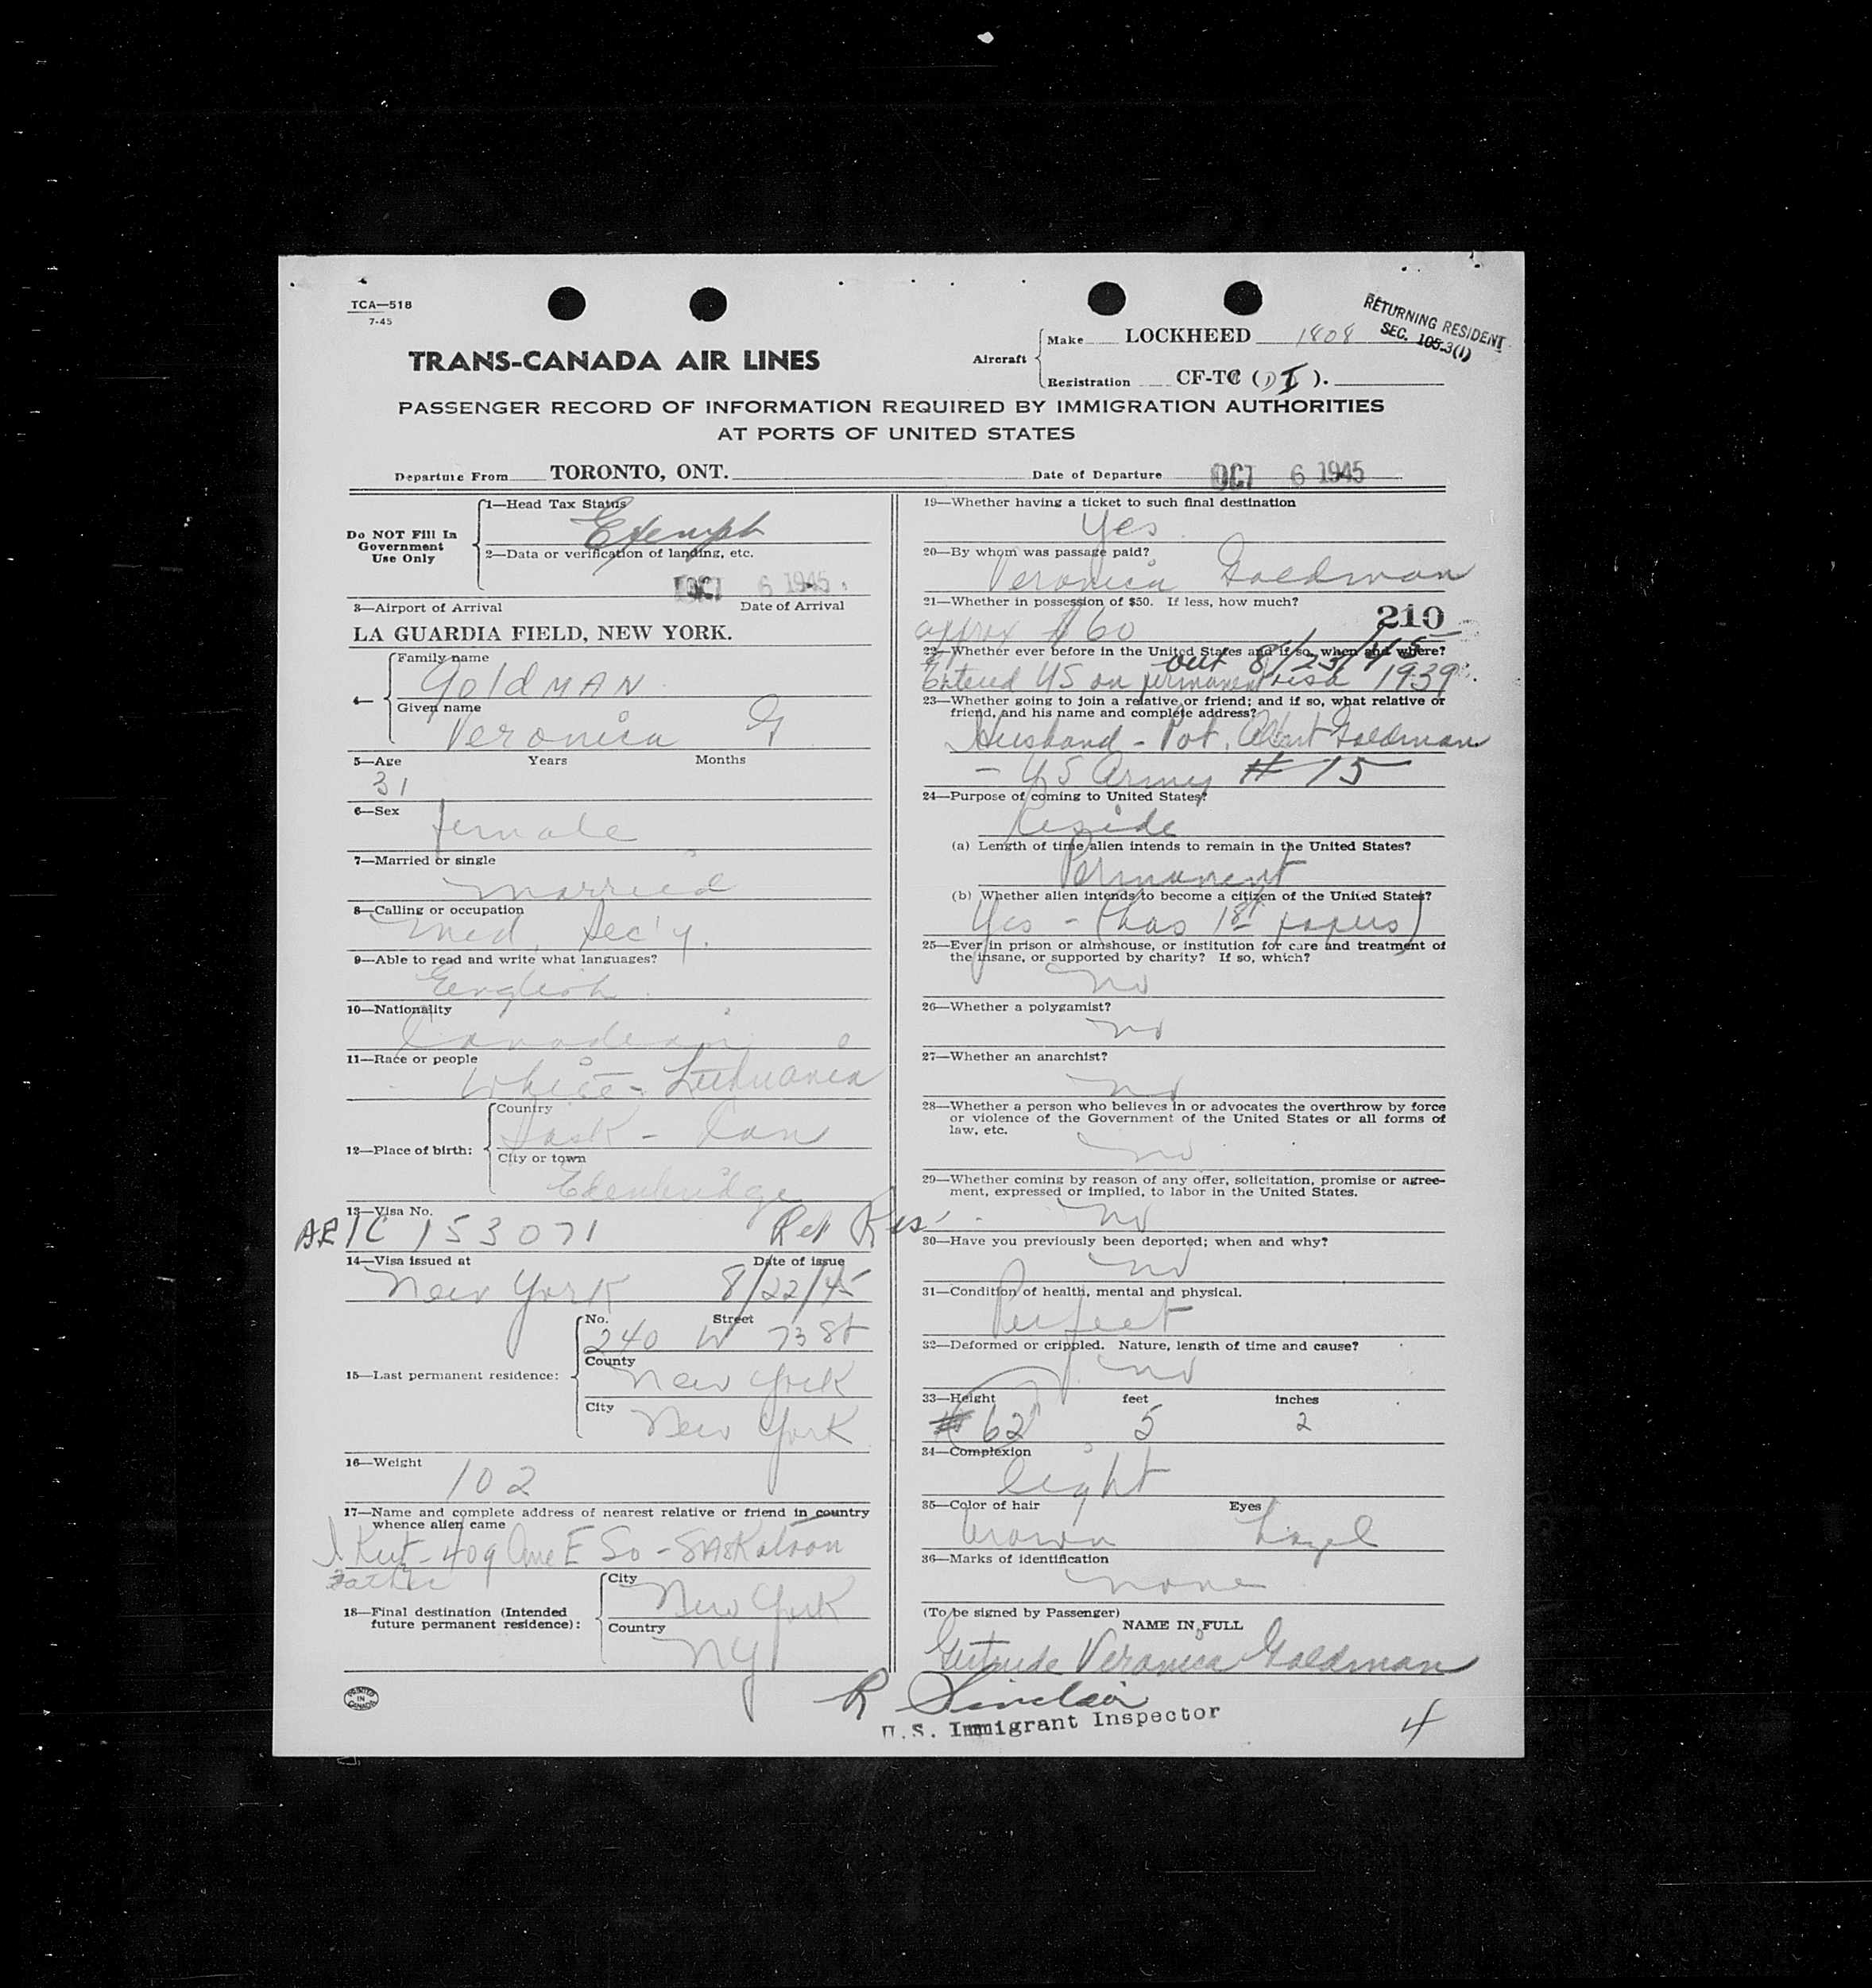 TCA—518
7-45
RETURNING RESIDENT
SEC. 105.3(1)
TRANS-CANADA AIR LINES
Aircraft
Make LOCKHEED 1808
Registration CF-TC ( I ).
PASSENGER RECORD OF INFORMATION REQUIRED BY IMMIGRATION AUTHORITIES
AT PORTS OF UNITED STATES
Departure From TORONTO, ONT. Date of Departure OCT 6 1945
Do NOT Fill In
Government
Use Only
1—Head Tax Status
Exempt
2—Data or verification of landing, etc.
OCT 6 1945
3—Airport of Arrival Date of Arrival
LA GUARDIA FIELD, NEW YORK.
4—
Family name
GoldMAN
Given name
Veronica G
5—Age Years Months
31
6—Sex
female
7—Married or single
married
8—Calling or occupation
Med. Sec'y.
9—Able to read and write what languages?
English
10—Nationality
Canadian
11—Race or people
White - Lithuania
12—Place of birth:
Country
Sask - Can
City or town
Edenbridge
13—Visa No.
AR 1C 153071 Ret Res.
14—Visa issued at Date of issue
New York 8/22/45
15—Last permanent residence:
No. Street
240 W 73 St
County
New York
City
New York
16—Weight
102
17—Name and complete address of nearest relative or friend in country
whence alien came
409 Ave E So - SASKatoon
Father
18—Final destination (Intended
future permanent residence):
City
New York
Country
NY
PRINTED
IN
CANADA
19—Whether having a ticket to such final destination
Yes
20—By whom was passage paid?
Veronica Goldman
21—Whether in possession of $50. If less, how much?
approx $60 210
22—Whether ever before in the United States and if so, when and where?
out 8/23/45
Entered US on permanent visa 1939
23—Whether going to join a relative or friend; and if so, what relative or
friend, and his name and complete address?
Husband - Pvt. Albert Goldman
- US Army # 15
24—Purpose of coming to United States?
Reside
(a) Length of time alien intends to remain in the United States?
Permanent
(b) Whether alien intends to become a citizen of the United States?
Yes - (has 1st papers)
25—Ever in prison or almshouse, or institution for care and treatment of
the insane, or supported by charity? If so, which?
no
26—Whether a polygamist?
no
27—Whether an anarchist?
no
28—Whether a person who believes in or advocates the overthrow by force
or violence of the Government of the United States or all forms of
law, etc.
no
29—Whether coming by reason of any offer, solicitation, promise or agree-
ment, expressed or implied, to labor in the United States.
no
30—Have you previously been deported; when and why?
no
31—Condition of health, mental and physical.
Perfect
32—Deformed or crippled. Nature, length of time and cause?
no
33—Height feet inches
62" 5 2
34—Complexion
light
35—Color of hair Eyes
brown hazel
36—Marks of identification
none
(To be signed by Passenger)
NAME IN FULL
Gertrude Veronica Goldman
R Sinclair
U.S. Immigrant Inspector
4